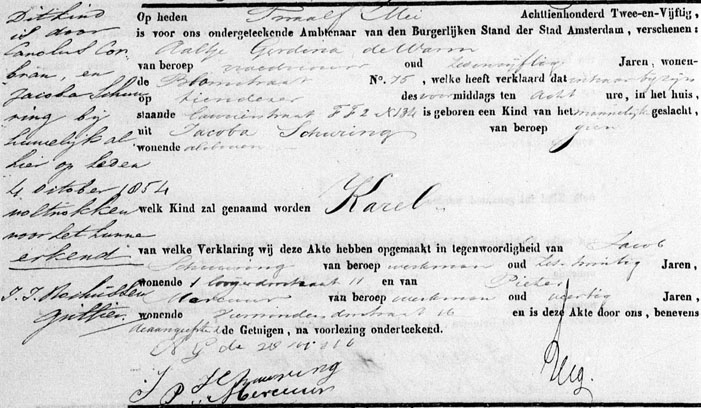 Dit kind
is door
Carolus Cor
bran, en
Jacoba Schuu
ring bij
huwelijk al
hier op heden
4 October 1854
voltrokken
voor het hunne
erkend
Op heden Twaalf Mei Achttienhonderd Twee-en-Vijftig,
is voor ons ondergeteekende Ambtenaar van den Burgerlijken Stand der Stad Amsterdam, verschenen:
Aaltje Gerdina de Warm
van beroep vroedvrouw oud Jaren, wonen-
de Blomstraat No. 75, welke heeft verklaard dat
op tiendezer des voormiddags ten Acht ure, in het huis,
staande FF 2 N 184 is geboren een Kind van het mannelijk geslacht,
uit Jacoba Schuring van beroep geen
wonende aldaar
welk Kind zal genaamd worden Karel
van welke Verklaring wij deze Akte hebben opgemaakt in tegenwoordigheid van Jacob
Schuuring van beroep werkman oud Jaren,
wonende 1 Loogerdwstraat 11 en van Pieter
Mercuur van beroep werkman oud veertig Jaren,
wonende 16 en is deze Akte door ons, benevens
de aangeefster de Getuigen, na voorlezing onderteekend.
J Schuuring
P Mercuur